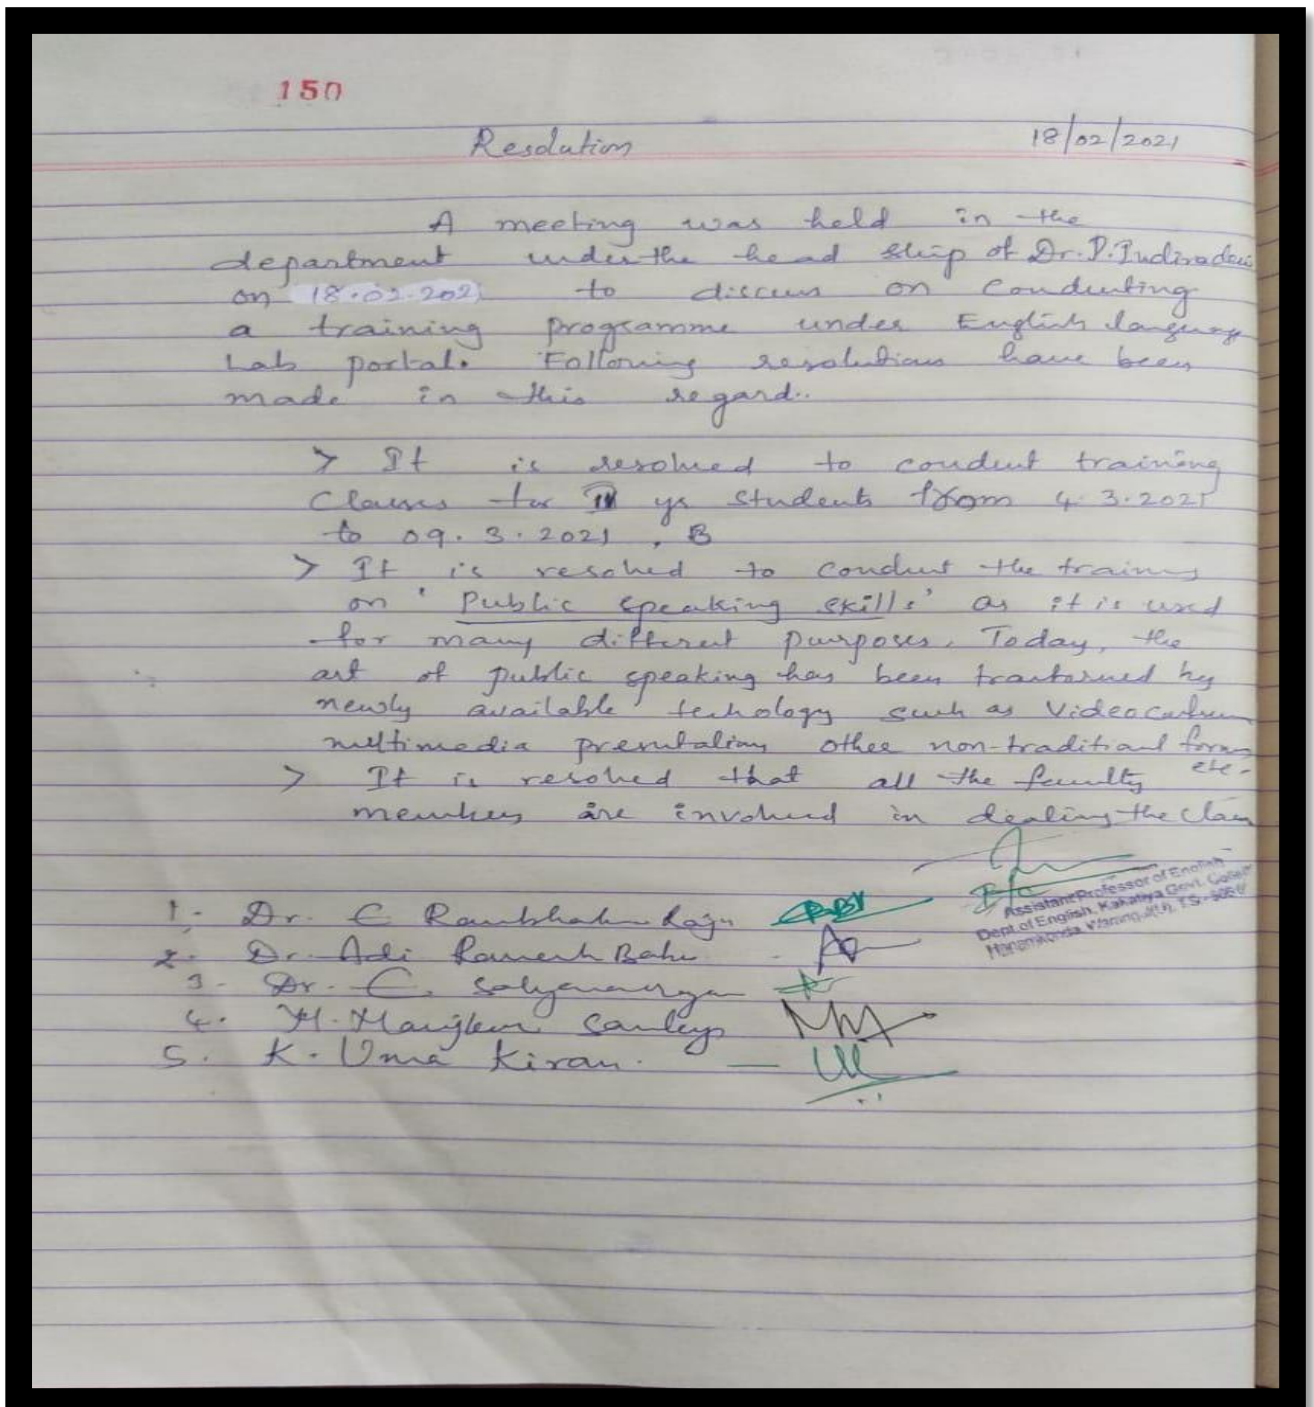 150
Resolution 18/02/2021
A meeting was held in the
department under the head ship of Dr. P. Indiradevi
on 18.02.2021 to discuss on Conducting
a training programme under English language
Lab portal. Following resolutions have been
made in this regard..
> It is resolved to conduct training
Classes for yr Students from 4.3.2021
to 09.3.2021 . B
> It is resolved to conduct the training
on 'Public speaking skills' as it is used
for many different purposes. Today, the
art of public speaking has been transformed by
newly available techology such as Video
multimedia presentations other non-traditional forms
etc.
> It is resolved that all the faculty
members are involved in dealing the class
Assistant Professor of English
Dept of English, Kakatiya Govt. College
Hanamkonda, Warangal(U), T.S-
1. Dr. E Raju
2. Dr. Adi Ramesh Babu
3. Dr. C. Satyanarayana
4. M.
5. K. Uma Kiran. —